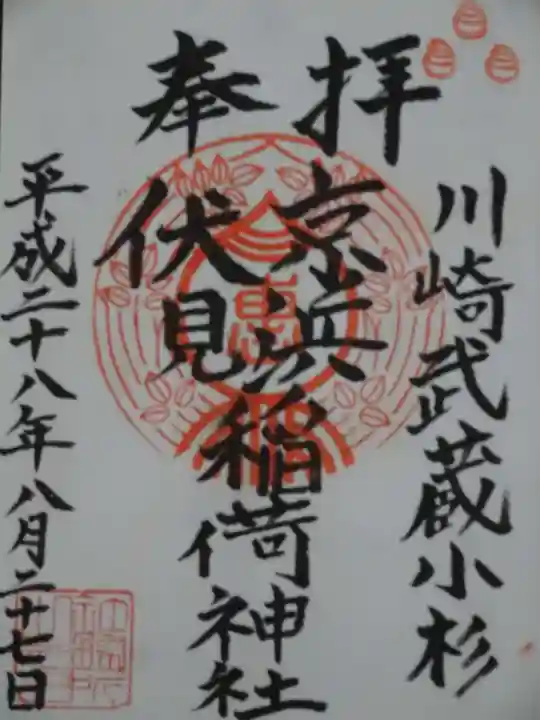 川崎武蔵小杉
奉拝
京浜
伏見
稲荷神社
平成二十八年八月二十七日